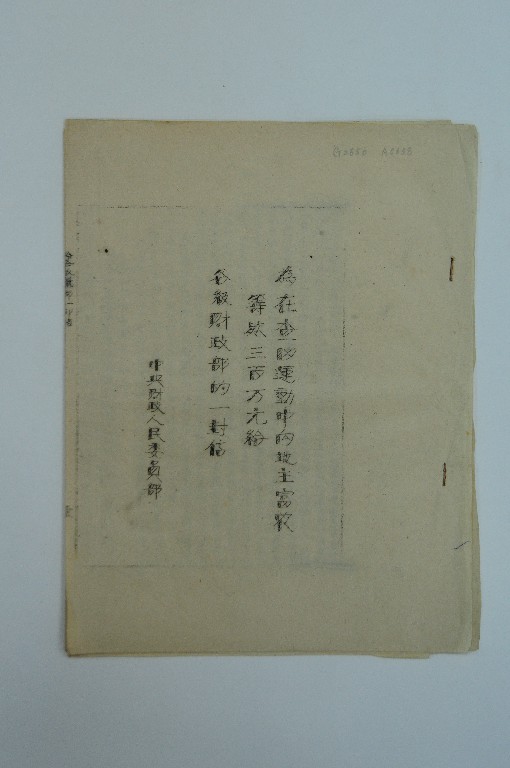 為在查田運動中向地主富农
筹款三百万元給
各級財政部的一封信
中央財政人民委員部